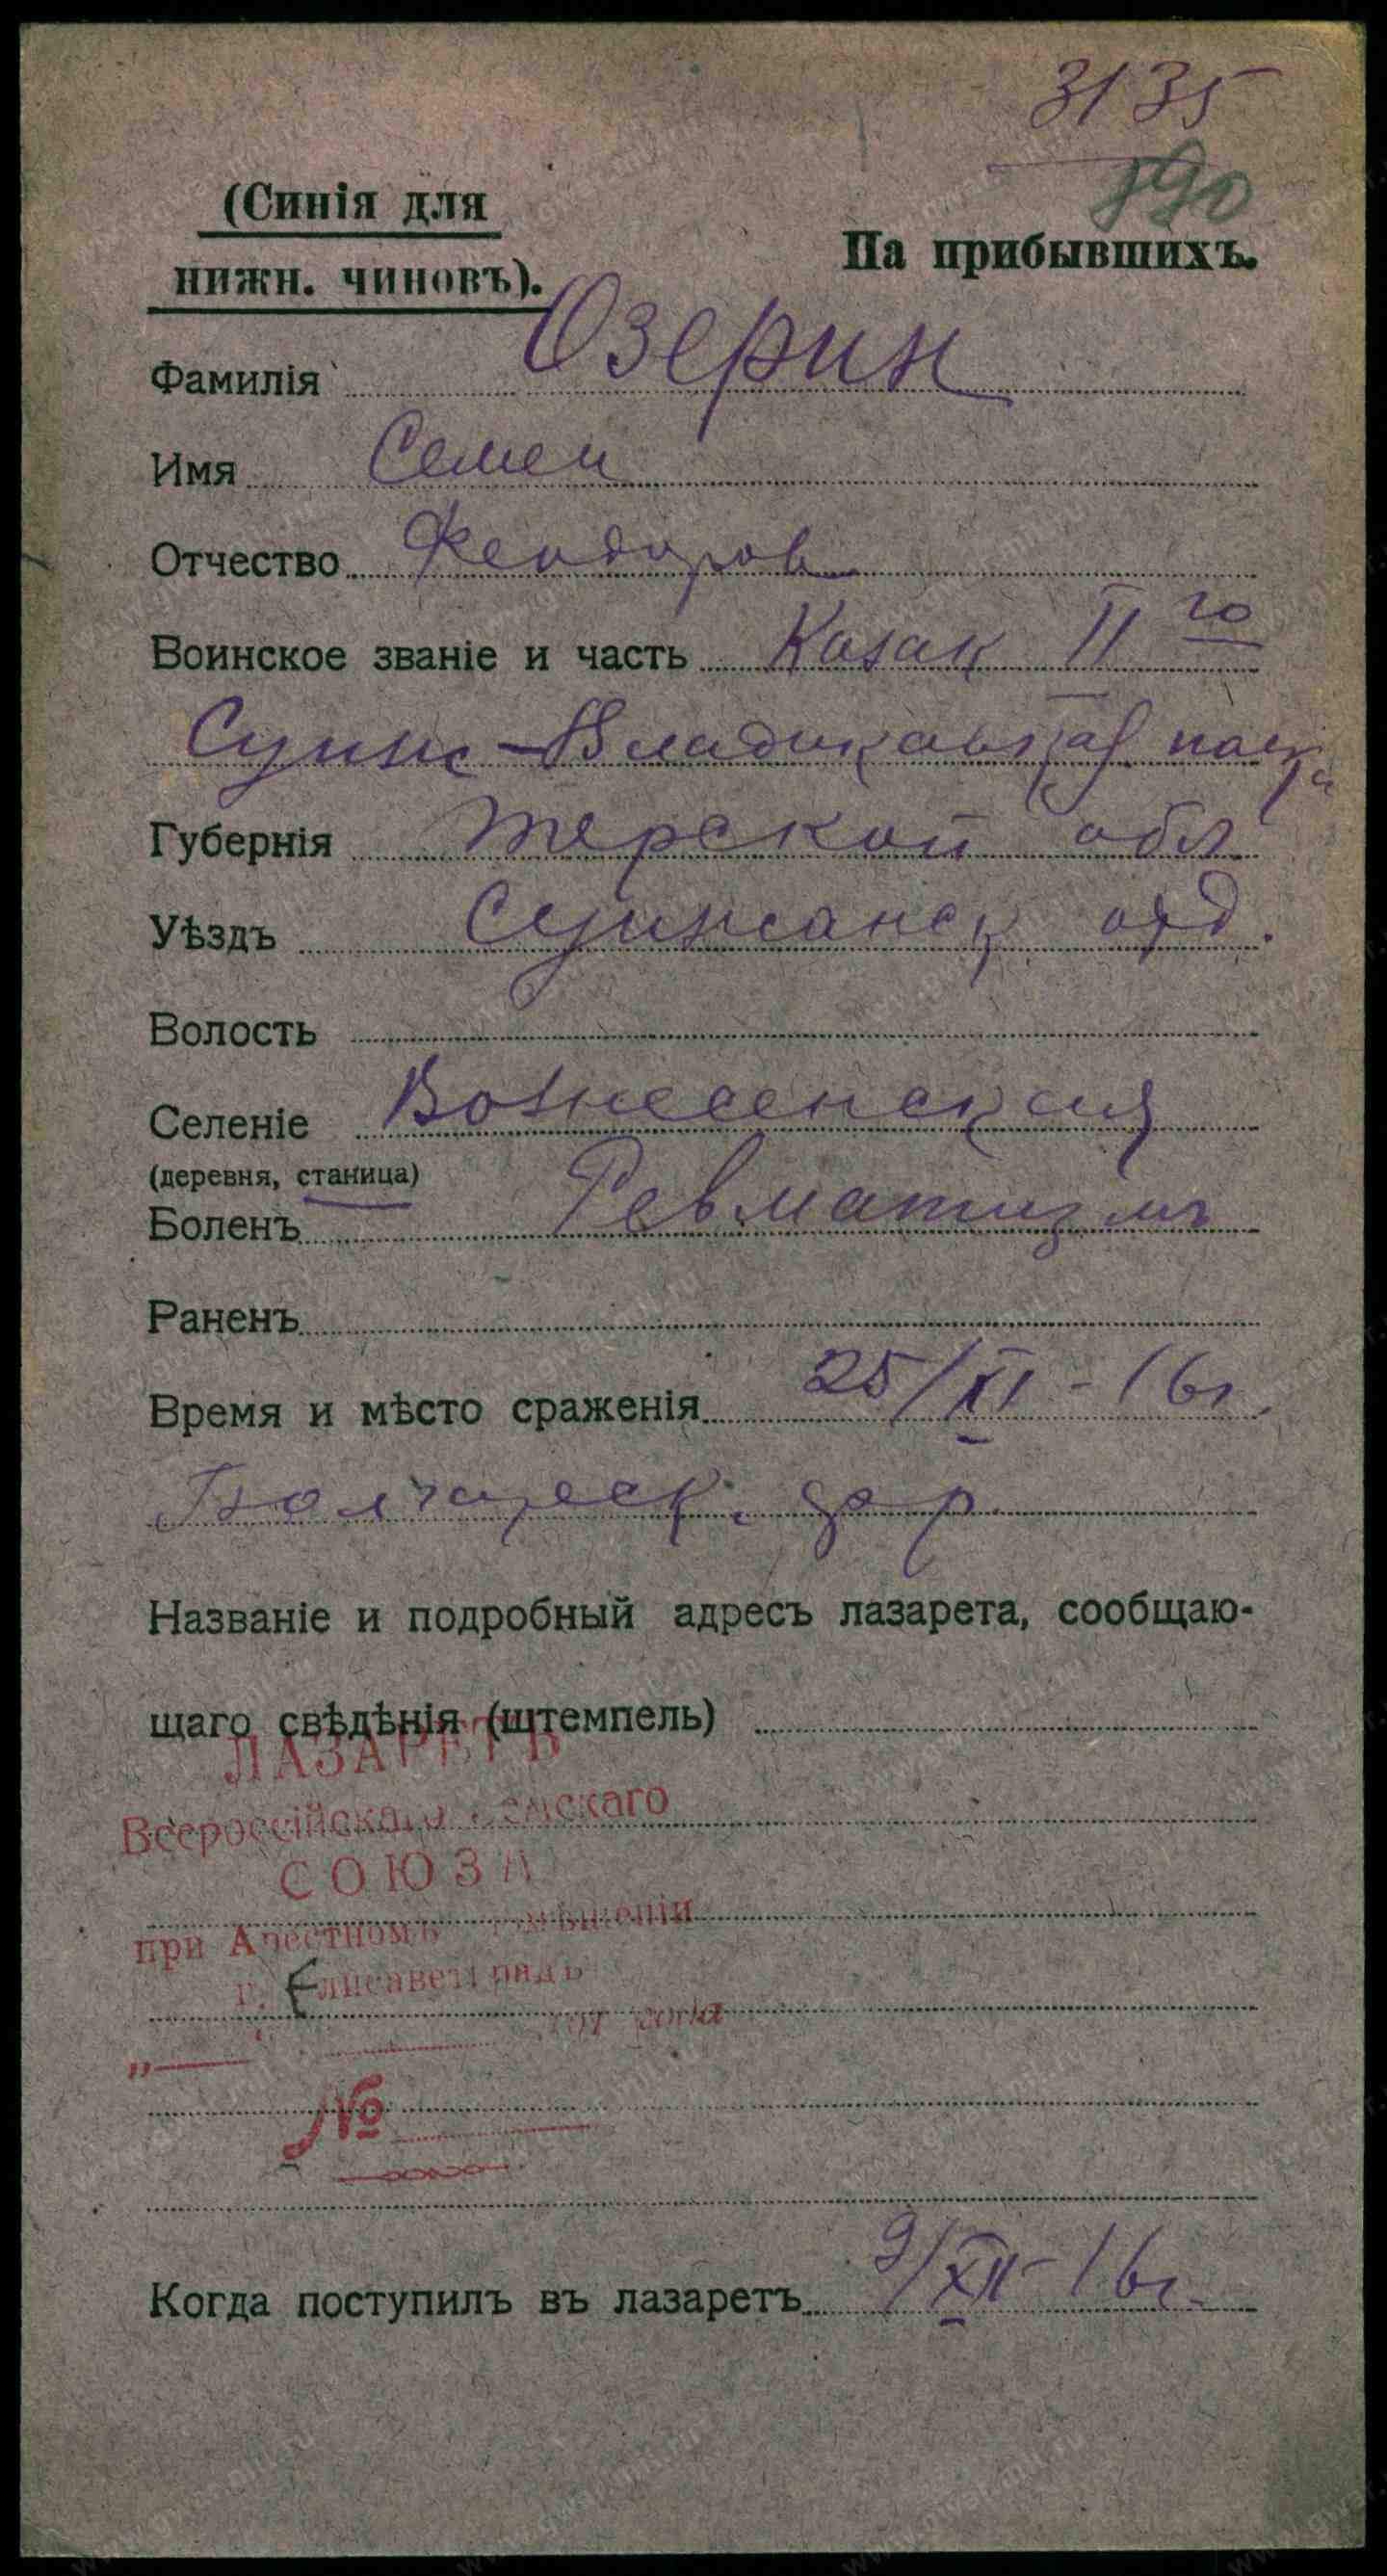 3135
890
(Синія для
нижн. чиновъ).
На прибывшихъ.
Фамилія Озерин
Имя Семен
Отчество Феодоров
Воинское званіе и часть Казак II го
Сунж-Владикавказ полка
Губернія Терской обл
Уѣздъ Сунженск отд.
Волость
Селеніе Вознесенская
(деревня, станица)
Боленъ Ревматизмъ
Раненъ
Время и мѣсто сраженія 25/XI - 16г.
дер.
Названіе и подробный адресъ лазарета, сообщаю-
щаго свѣдѣнія (штемпель)
ЛАЗАРЕТЪ
Всероссійскаго Земскаго
СОЮЗА
при
г. Елисаветградъ
№
Когда поступилъ въ лазаретъ 9/XII - 16г.